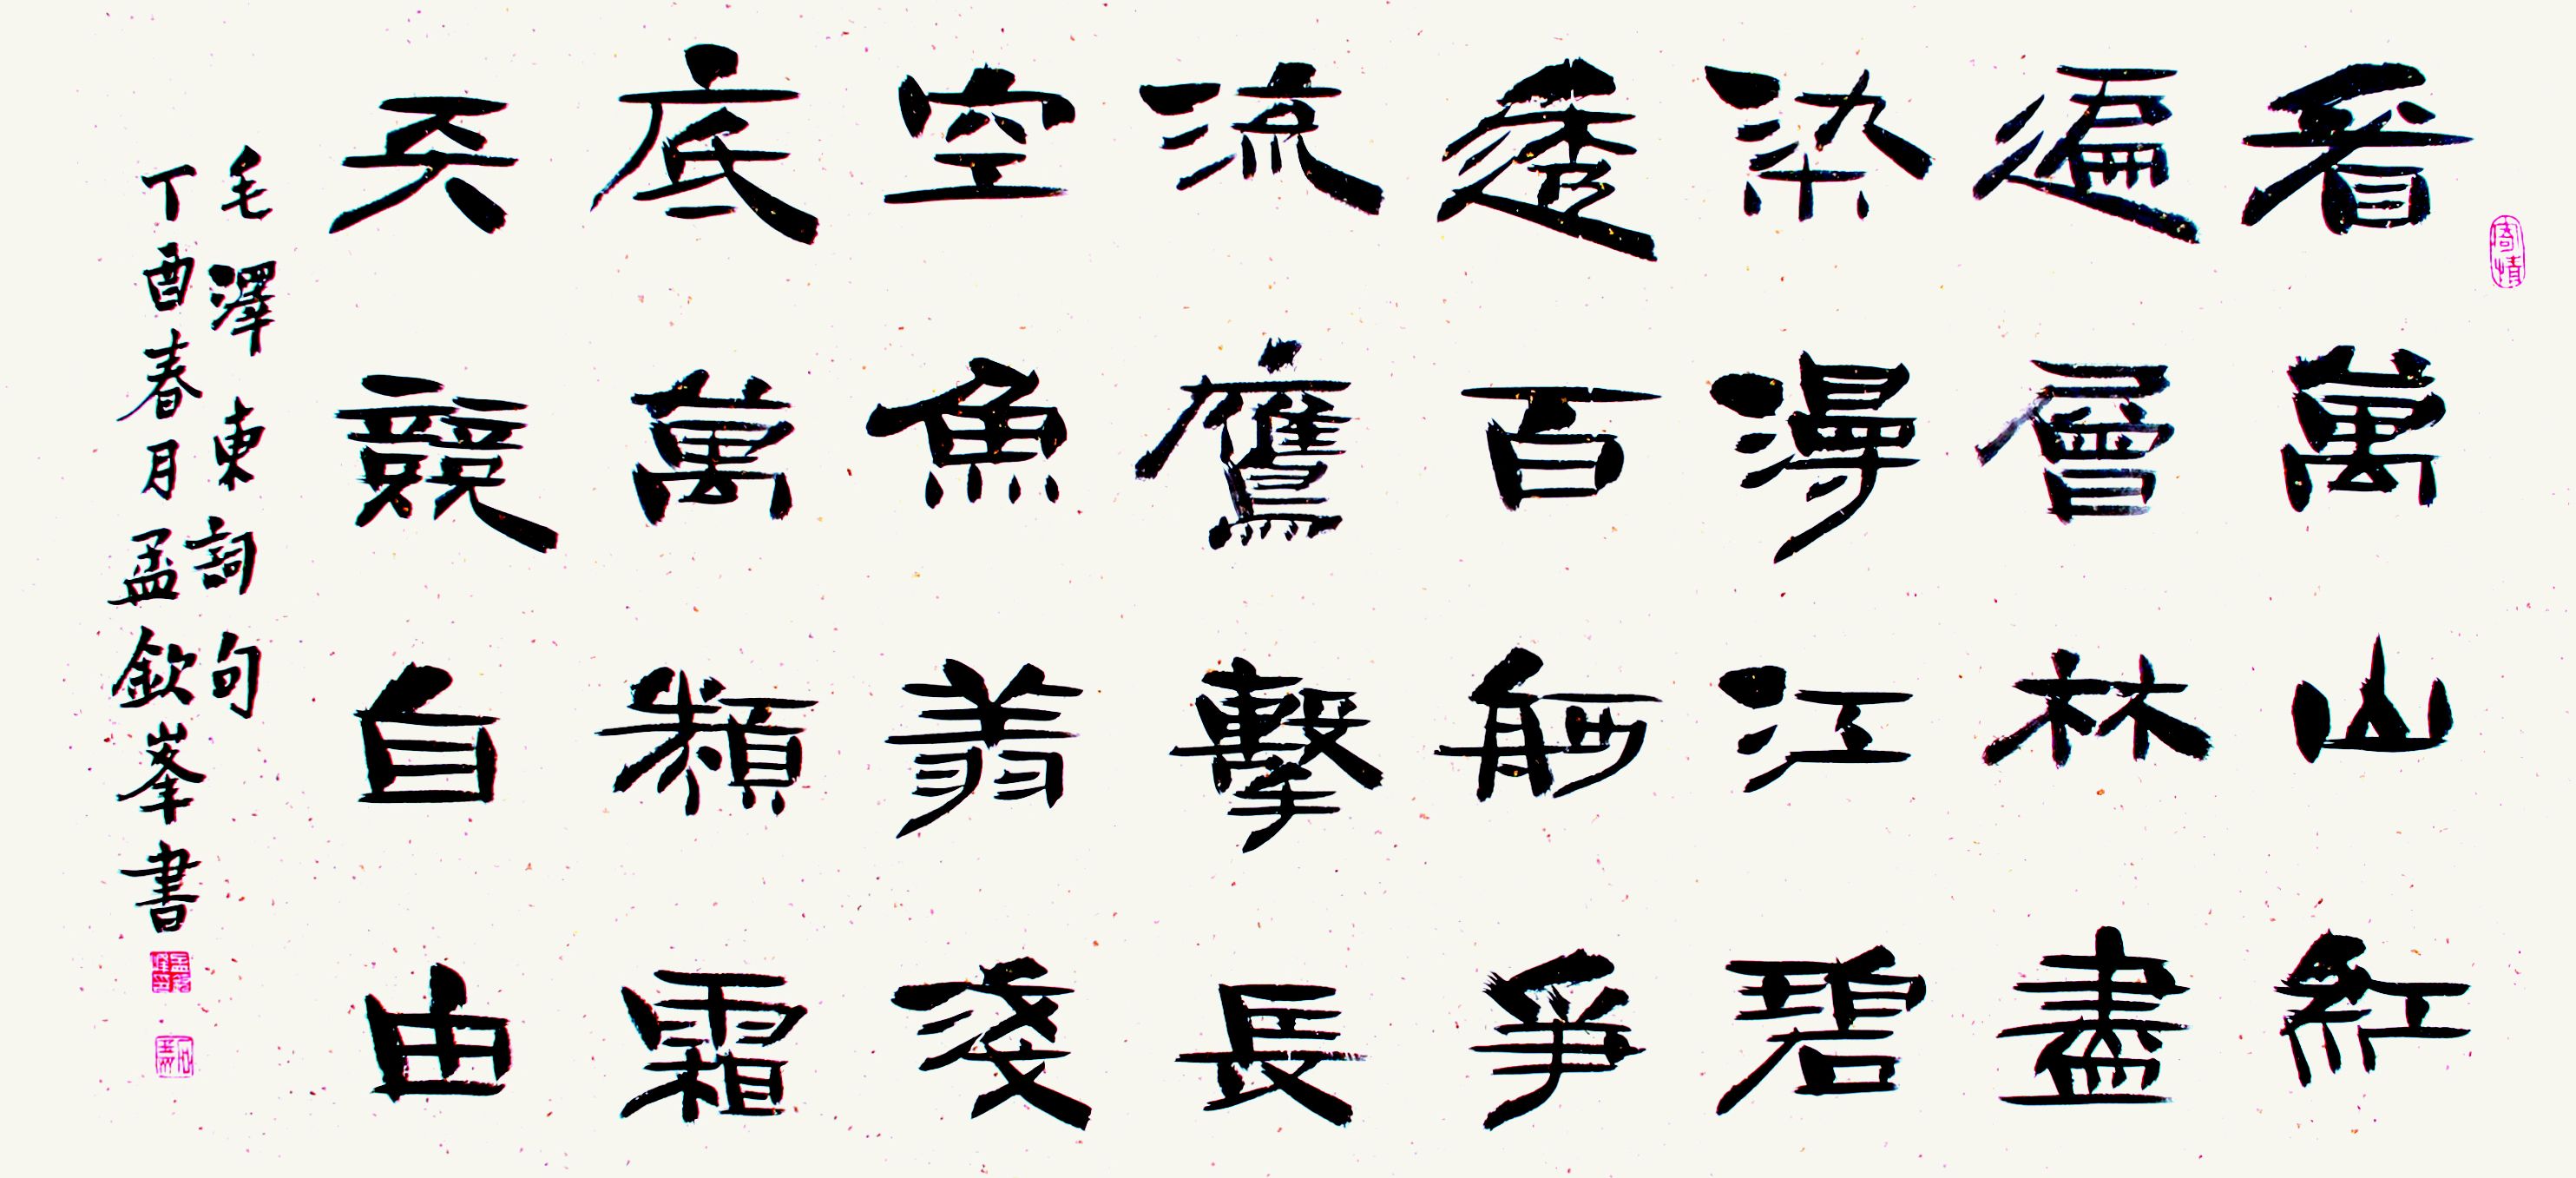 看萬山紅
遍層林盡
染漫江碧
透百舸爭
流鷹擊長
空魚翔淺
底萬類霜
天競自由
毛澤東詞句
丁酉春月孟欽峯書